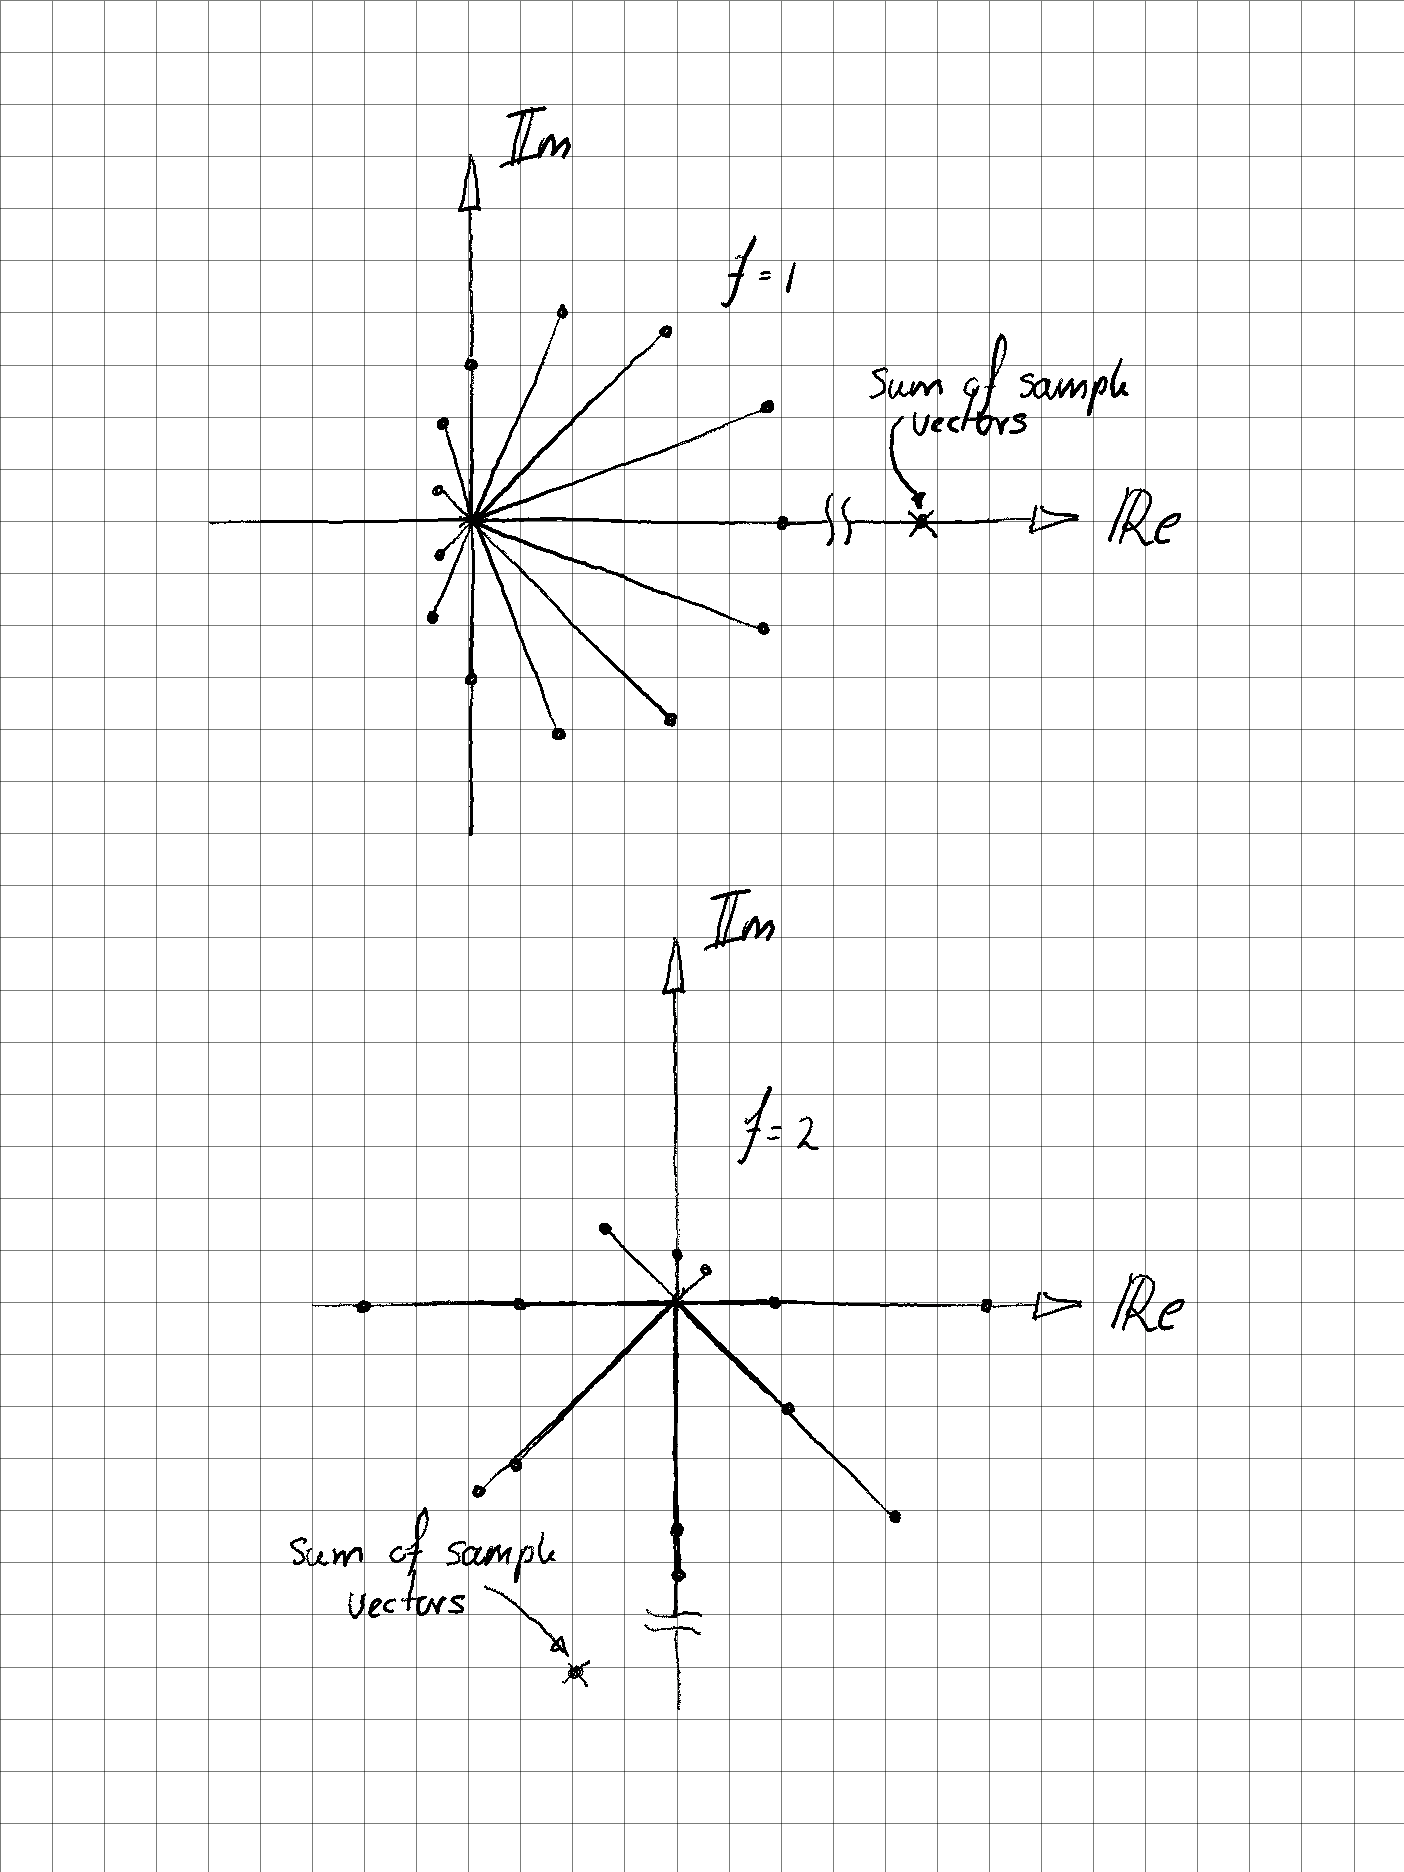 Im
f=1
Sum of sample
vectors
Re
Im
f=2
Re
Sum of sample
vectors